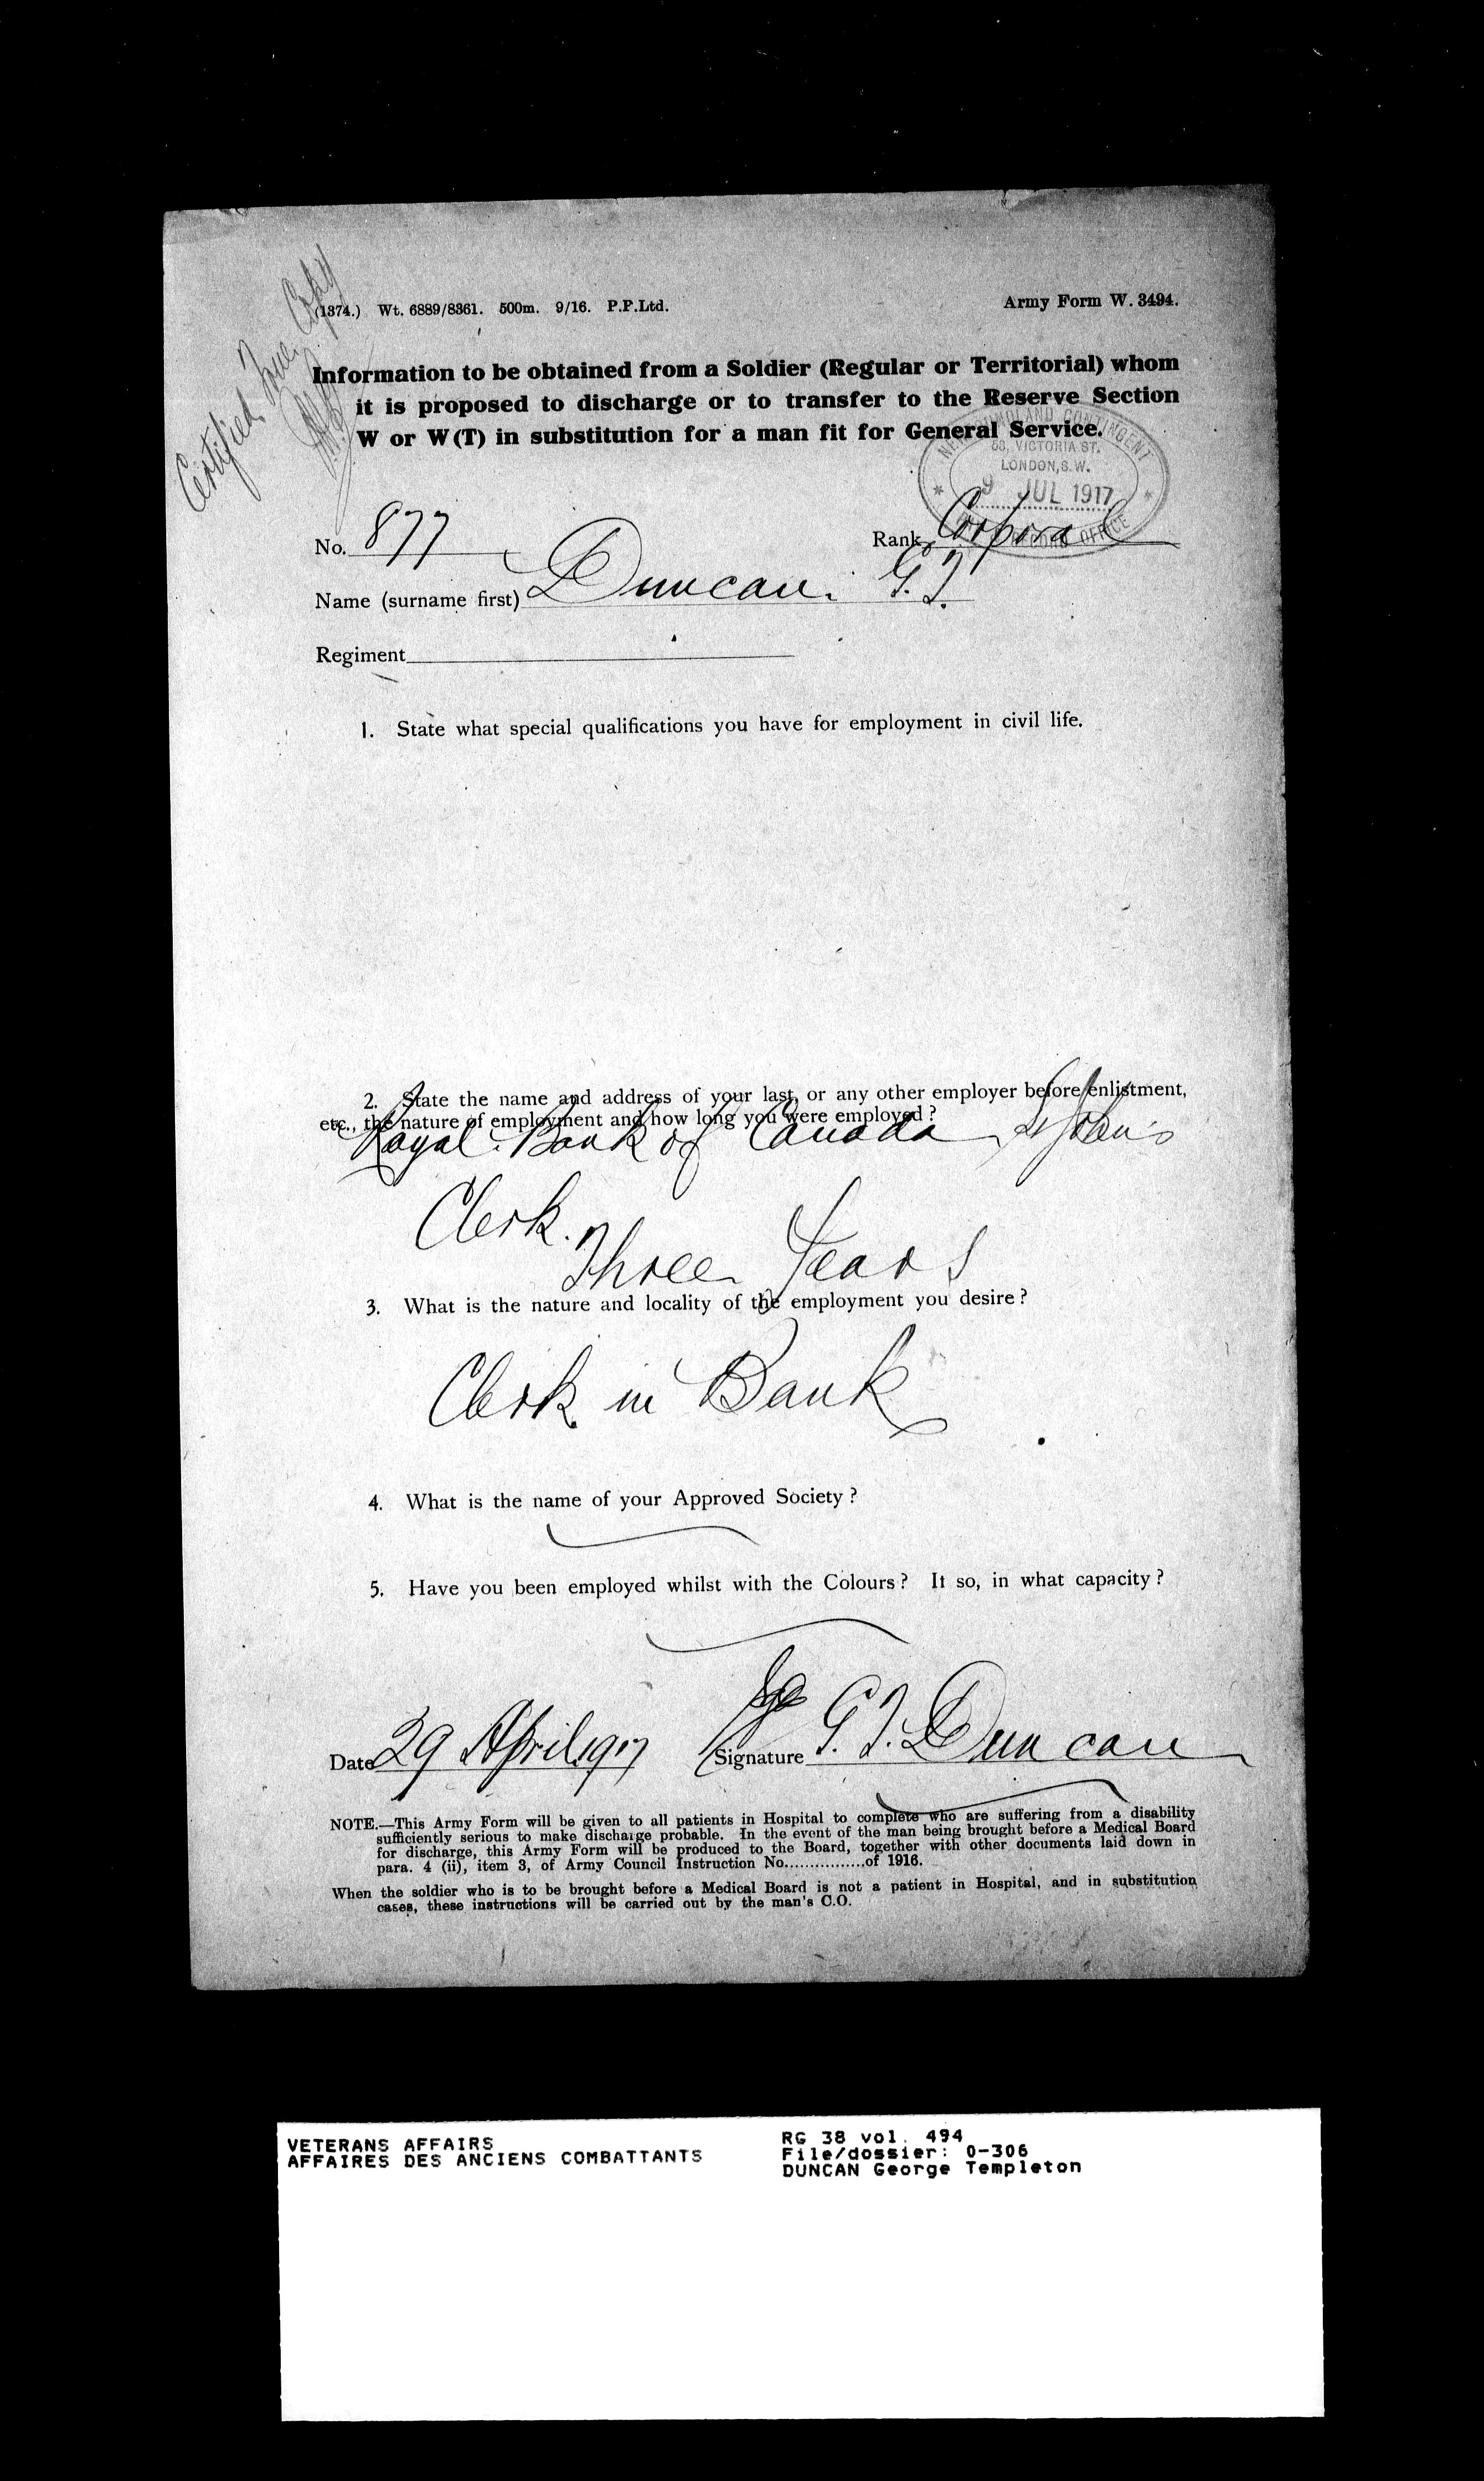 Certified True Copy
(1374.) Wt. 6889/8361. 500m. 9/16. P.P.Ltd.
Army Form W. 3494.
Information to be obtained from a Soldier (Regular or Territorial) whom
it is proposed to discharge or to transfer to the Reserve Section
W or W(T) in substitution for a man fit for General Service.
NEWFOUNDLAND CONTINGENT
58, VICTORIA ST.
LONDON, S.W.
9 JUL 1917
RECORD OFFICE
No. 877 Rank Corporal
Name (surname first) Duncan. G.T.
Regiment
1. State what special qualifications you have for employment in civil life.
2. State the name and address of your last, or any other employer before enlistment,
etc., the nature of employment and how long you were employed?
Royal Bank of Canada St John's
Clerk.
Three Years
3. What is the nature and locality of the employment you desire?
Clerk in Bank
4. What is the name of your Approved Society?
5. Have you been employed whilst with the Colours? It so, in what capacity?
Date 29 April 1917 Signature G. T. Duncan
NOTE.—This Army Form will be given to all patients in Hospital to complete who are suffering from a disability
sufficiently serious to make discharge probable. In the event of the man being brought before a Medical Board
for discharge, this Army Form will be produced to the Board, together with other documents laid down in
para. 4 (ii), item 3, of Army Council Instruction No................of 1916.
When the soldier who is to be brought before a Medical Board is not a patient in Hospital, and in substitution
cases, these instructions will be carried out by the man's C.O.
VETERANS AFFAIRS
AFFAIRES DES ANCIENS COMBATTANTS
RG 38 vol. 494
File/dossier: 0-306
DUNCAN George Templeton